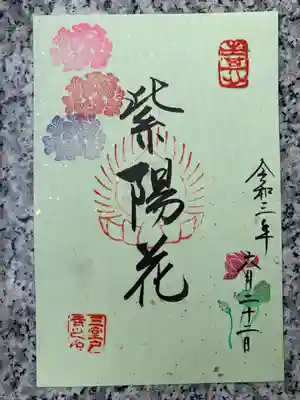 令和三年
六月二十二日
紫陽花